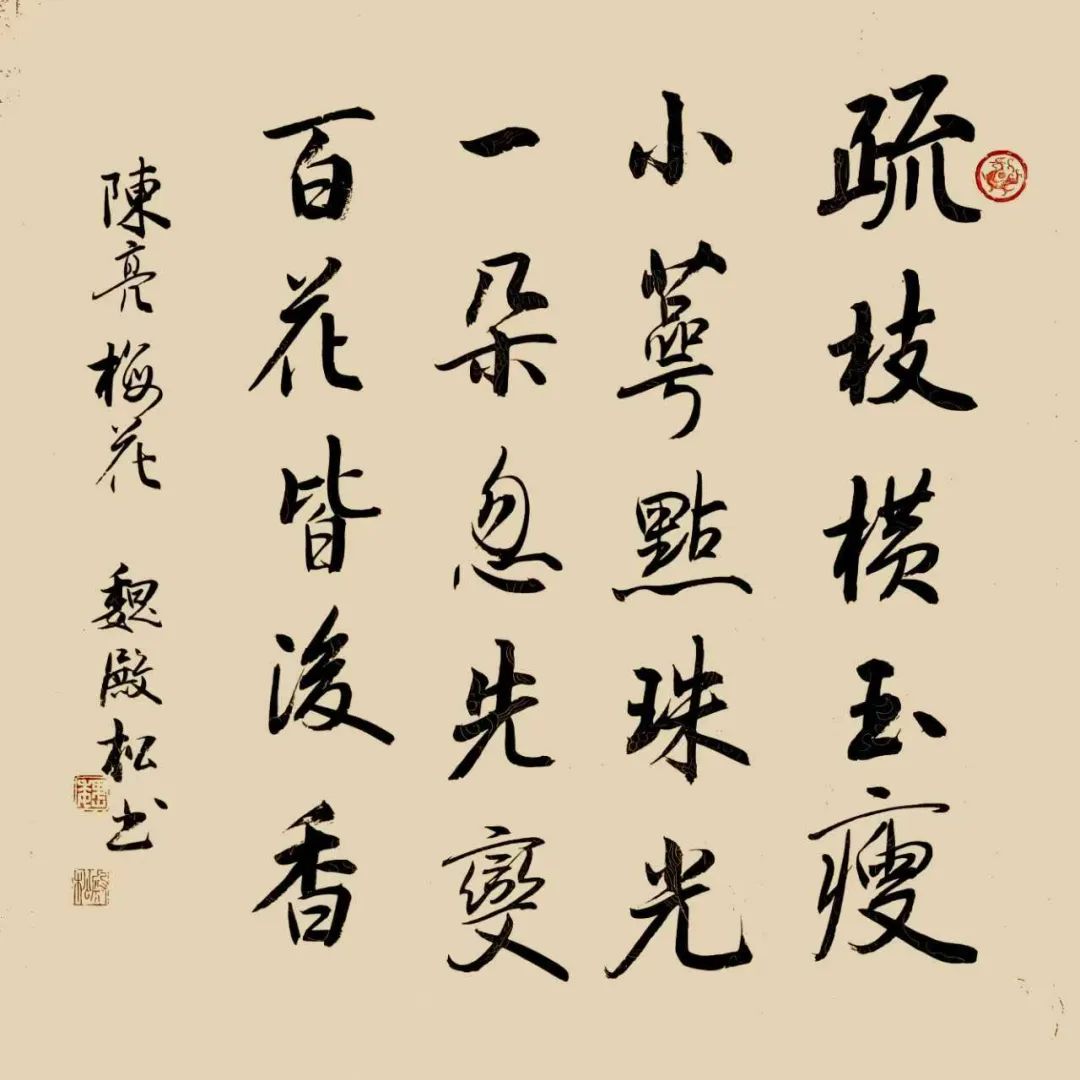 疏枝橫玉瘦
小萼點珠光
一朵忽先變
百花皆後香
陳亮梅花 魏殿松书